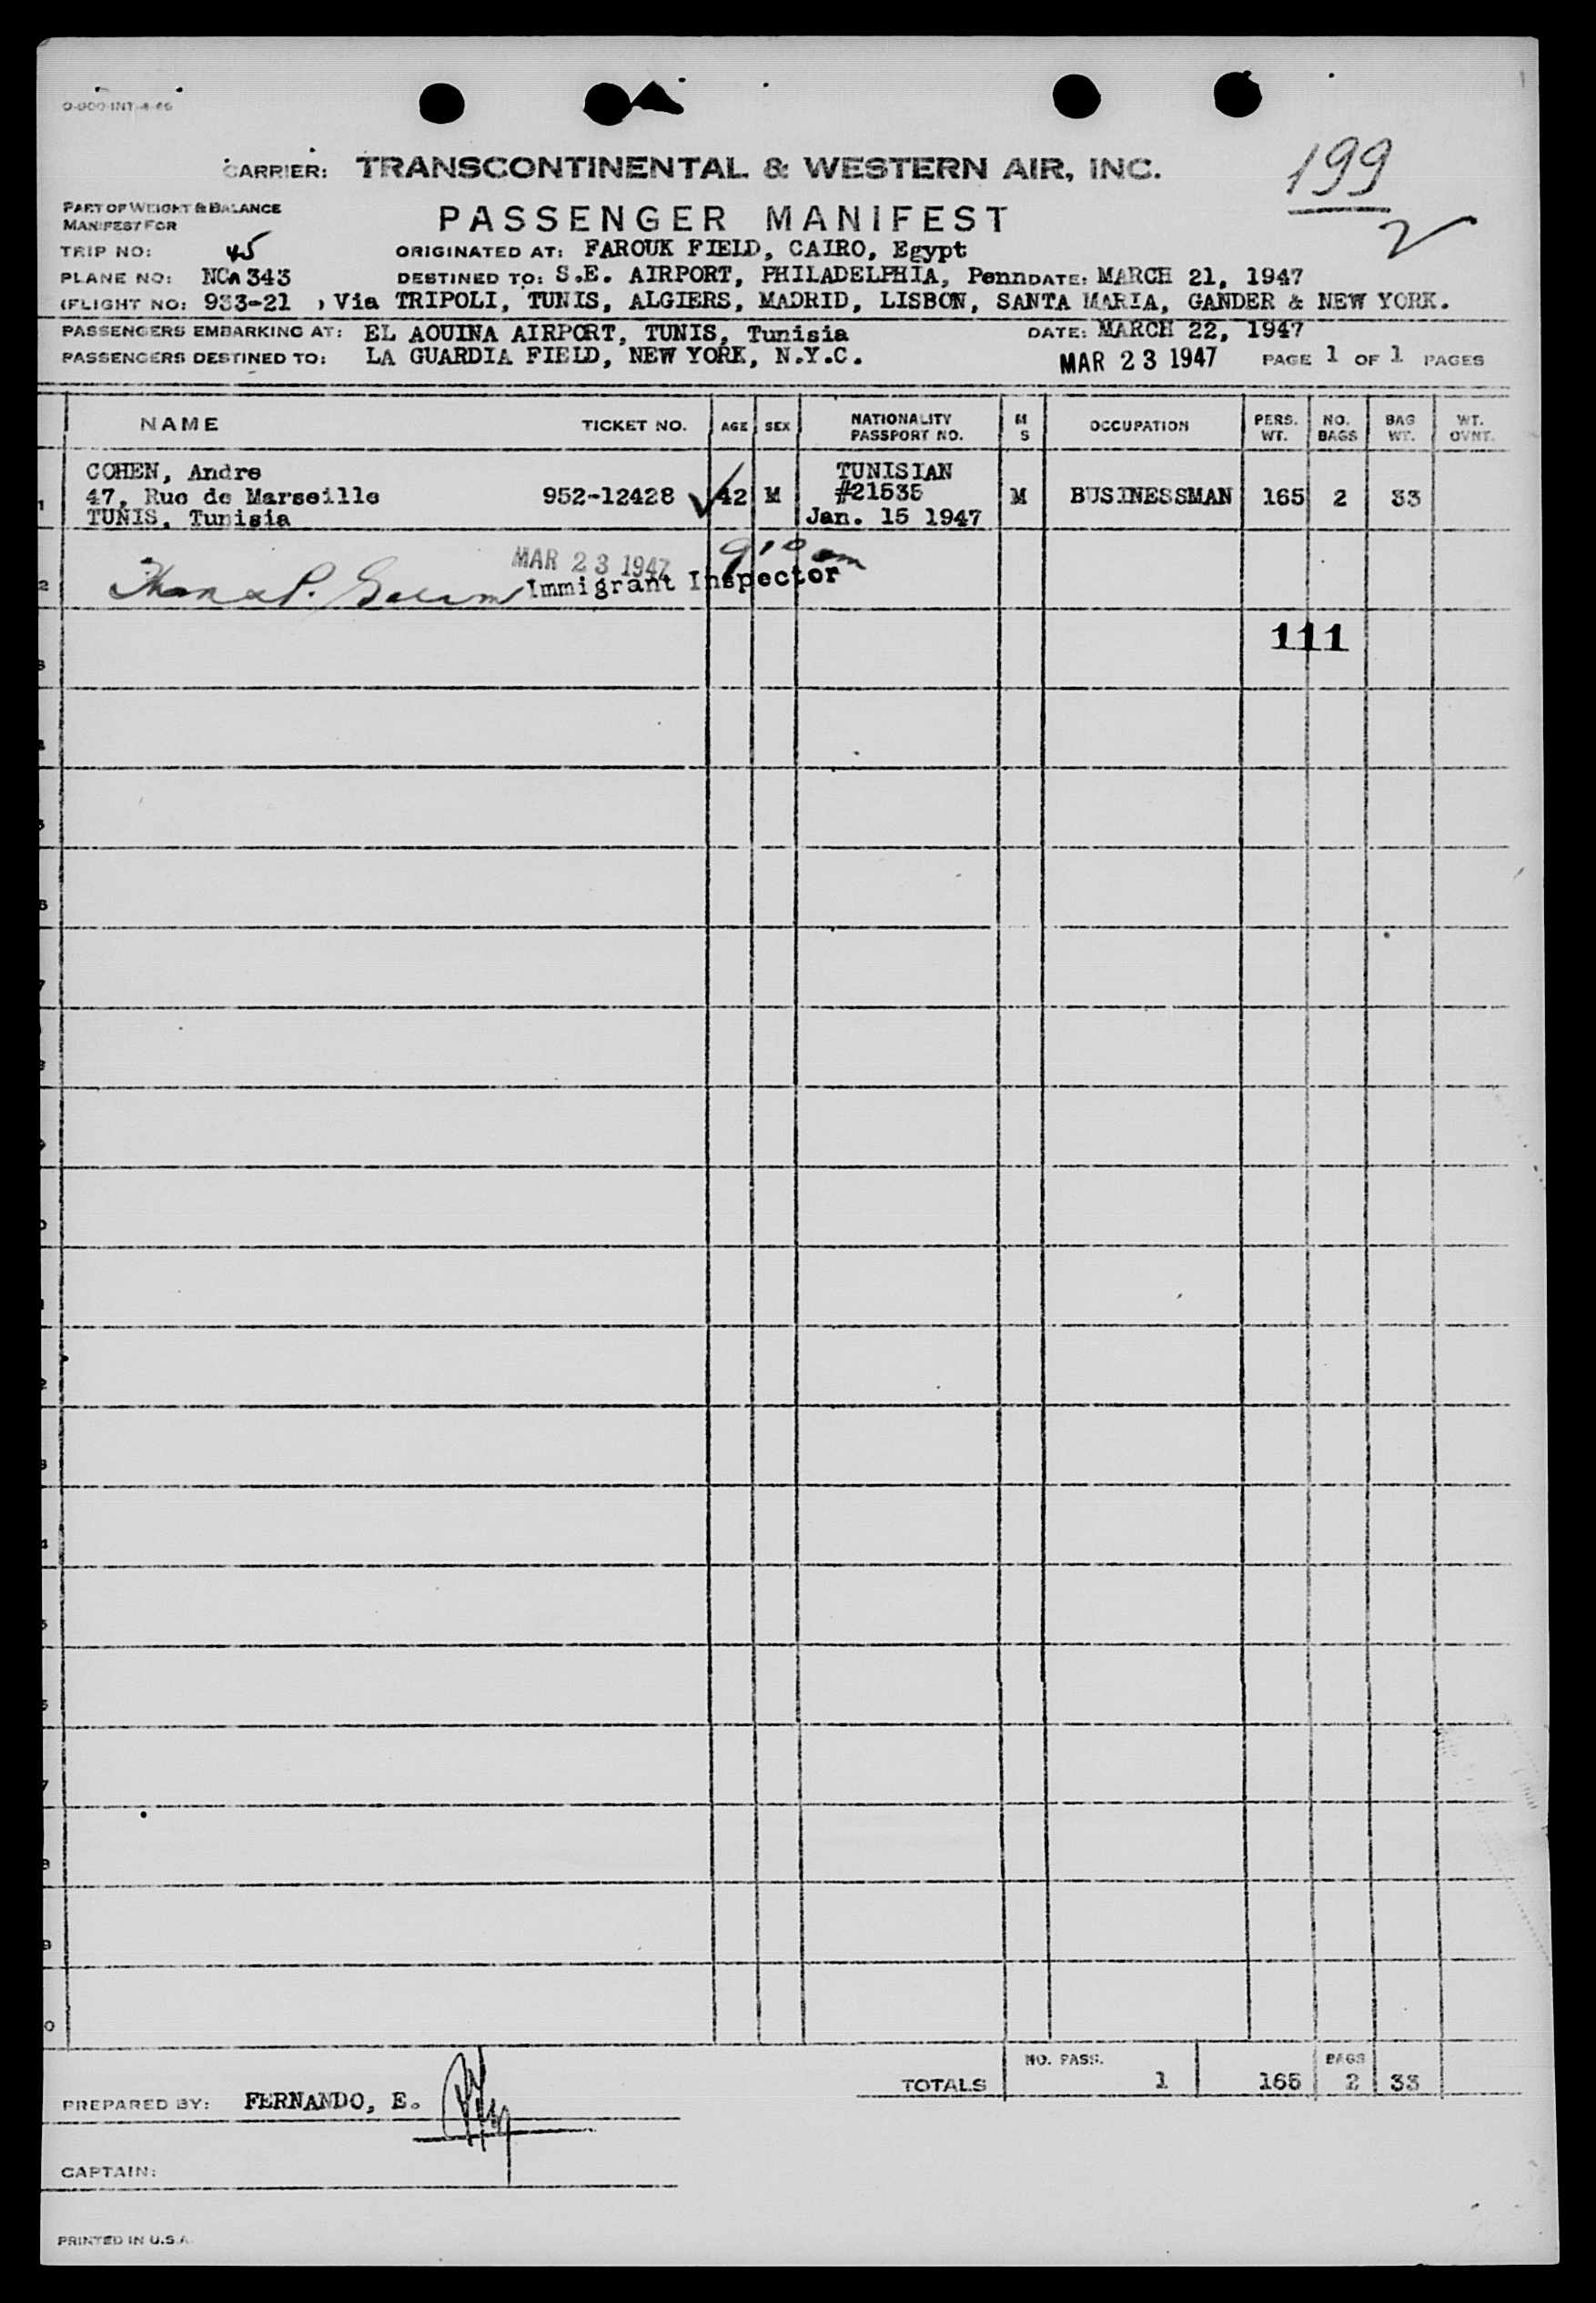 O-900-INT-4-46
199
CARRIER: TRANSCONTINENTAL & WESTERN AIR, INC.
2
PART OF WEIGHT & BALANCE
MANIFEST FOR
PASSENGER MANIFEST
TRIP NO: 45 ORIGINATED AT: FAROUK FIELD, CAIRO, Egypt
PLANE NO: NCA 343 DESTINED TO: S.E. AIRPORT, PHILADELPHIA, Penn DATE: MARCH 21, 1947
(FLIGHT NO: 933-21 ) Via TRIPOLI, TUNIS, ALGIERS, MADRID, LISBON, SANTA MARIA, GANDER & NEW YORK.
PASSENGERS EMBARKING AT: EL AOUINA AIRPORT, TUNIS, Tunisia DATE: MARCH 22, 1947
PASSENGERS DESTINED TO: LA GUARDIA FIELD, NEW YORK, N.Y.C. MAR 23 1947 PAGE 1 OF 1 PAGES
NAME TICKET NO. AGE SEX NATIONALITY PASSPORT NO. M S OCCUPATION PERS. WT. NO. BAGS BAG WT. WT. OVNT.
COHEN, Andre TUNISIAN
1 47, Rue de Marseille 952-12428 42 M #21535 M BUSINESSMAN 165 2 33
TUNIS, Tunisia Jan. 15 1947
MAR 23 1947 9:10 am
2 Immigrant Inspector
111
3
4
5
6
7
8
9
0
1
2
3
4
5
6
7
8
9
0
NO. PASS. BAGS
TOTALS 1 165 2 33
PREPARED BY: FERNANDO, E.
CAPTAIN:
PRINTED IN U.S.A.